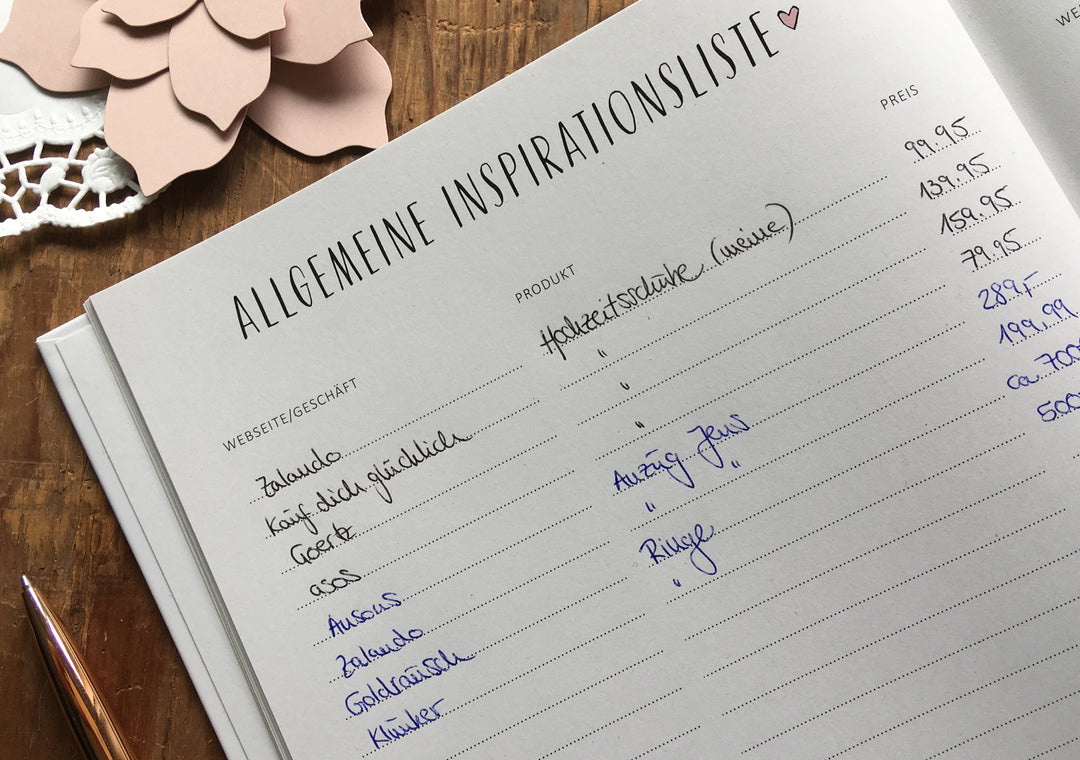 ALLGEMEINE INSPIRATIONSLISTE
WEBSEITE/GESCHÄFT PRODUKT PREIS
Zalando Hochzeitsschuhe (meine) 99.95
Kauf dich glücklich " 139.95
Goertz " 159.95
asos " 79.95
Ansons Anzug Jens 289,-
Zalando " " 199,99
Goldrausch Ringe ca. 700
Klunker " 500